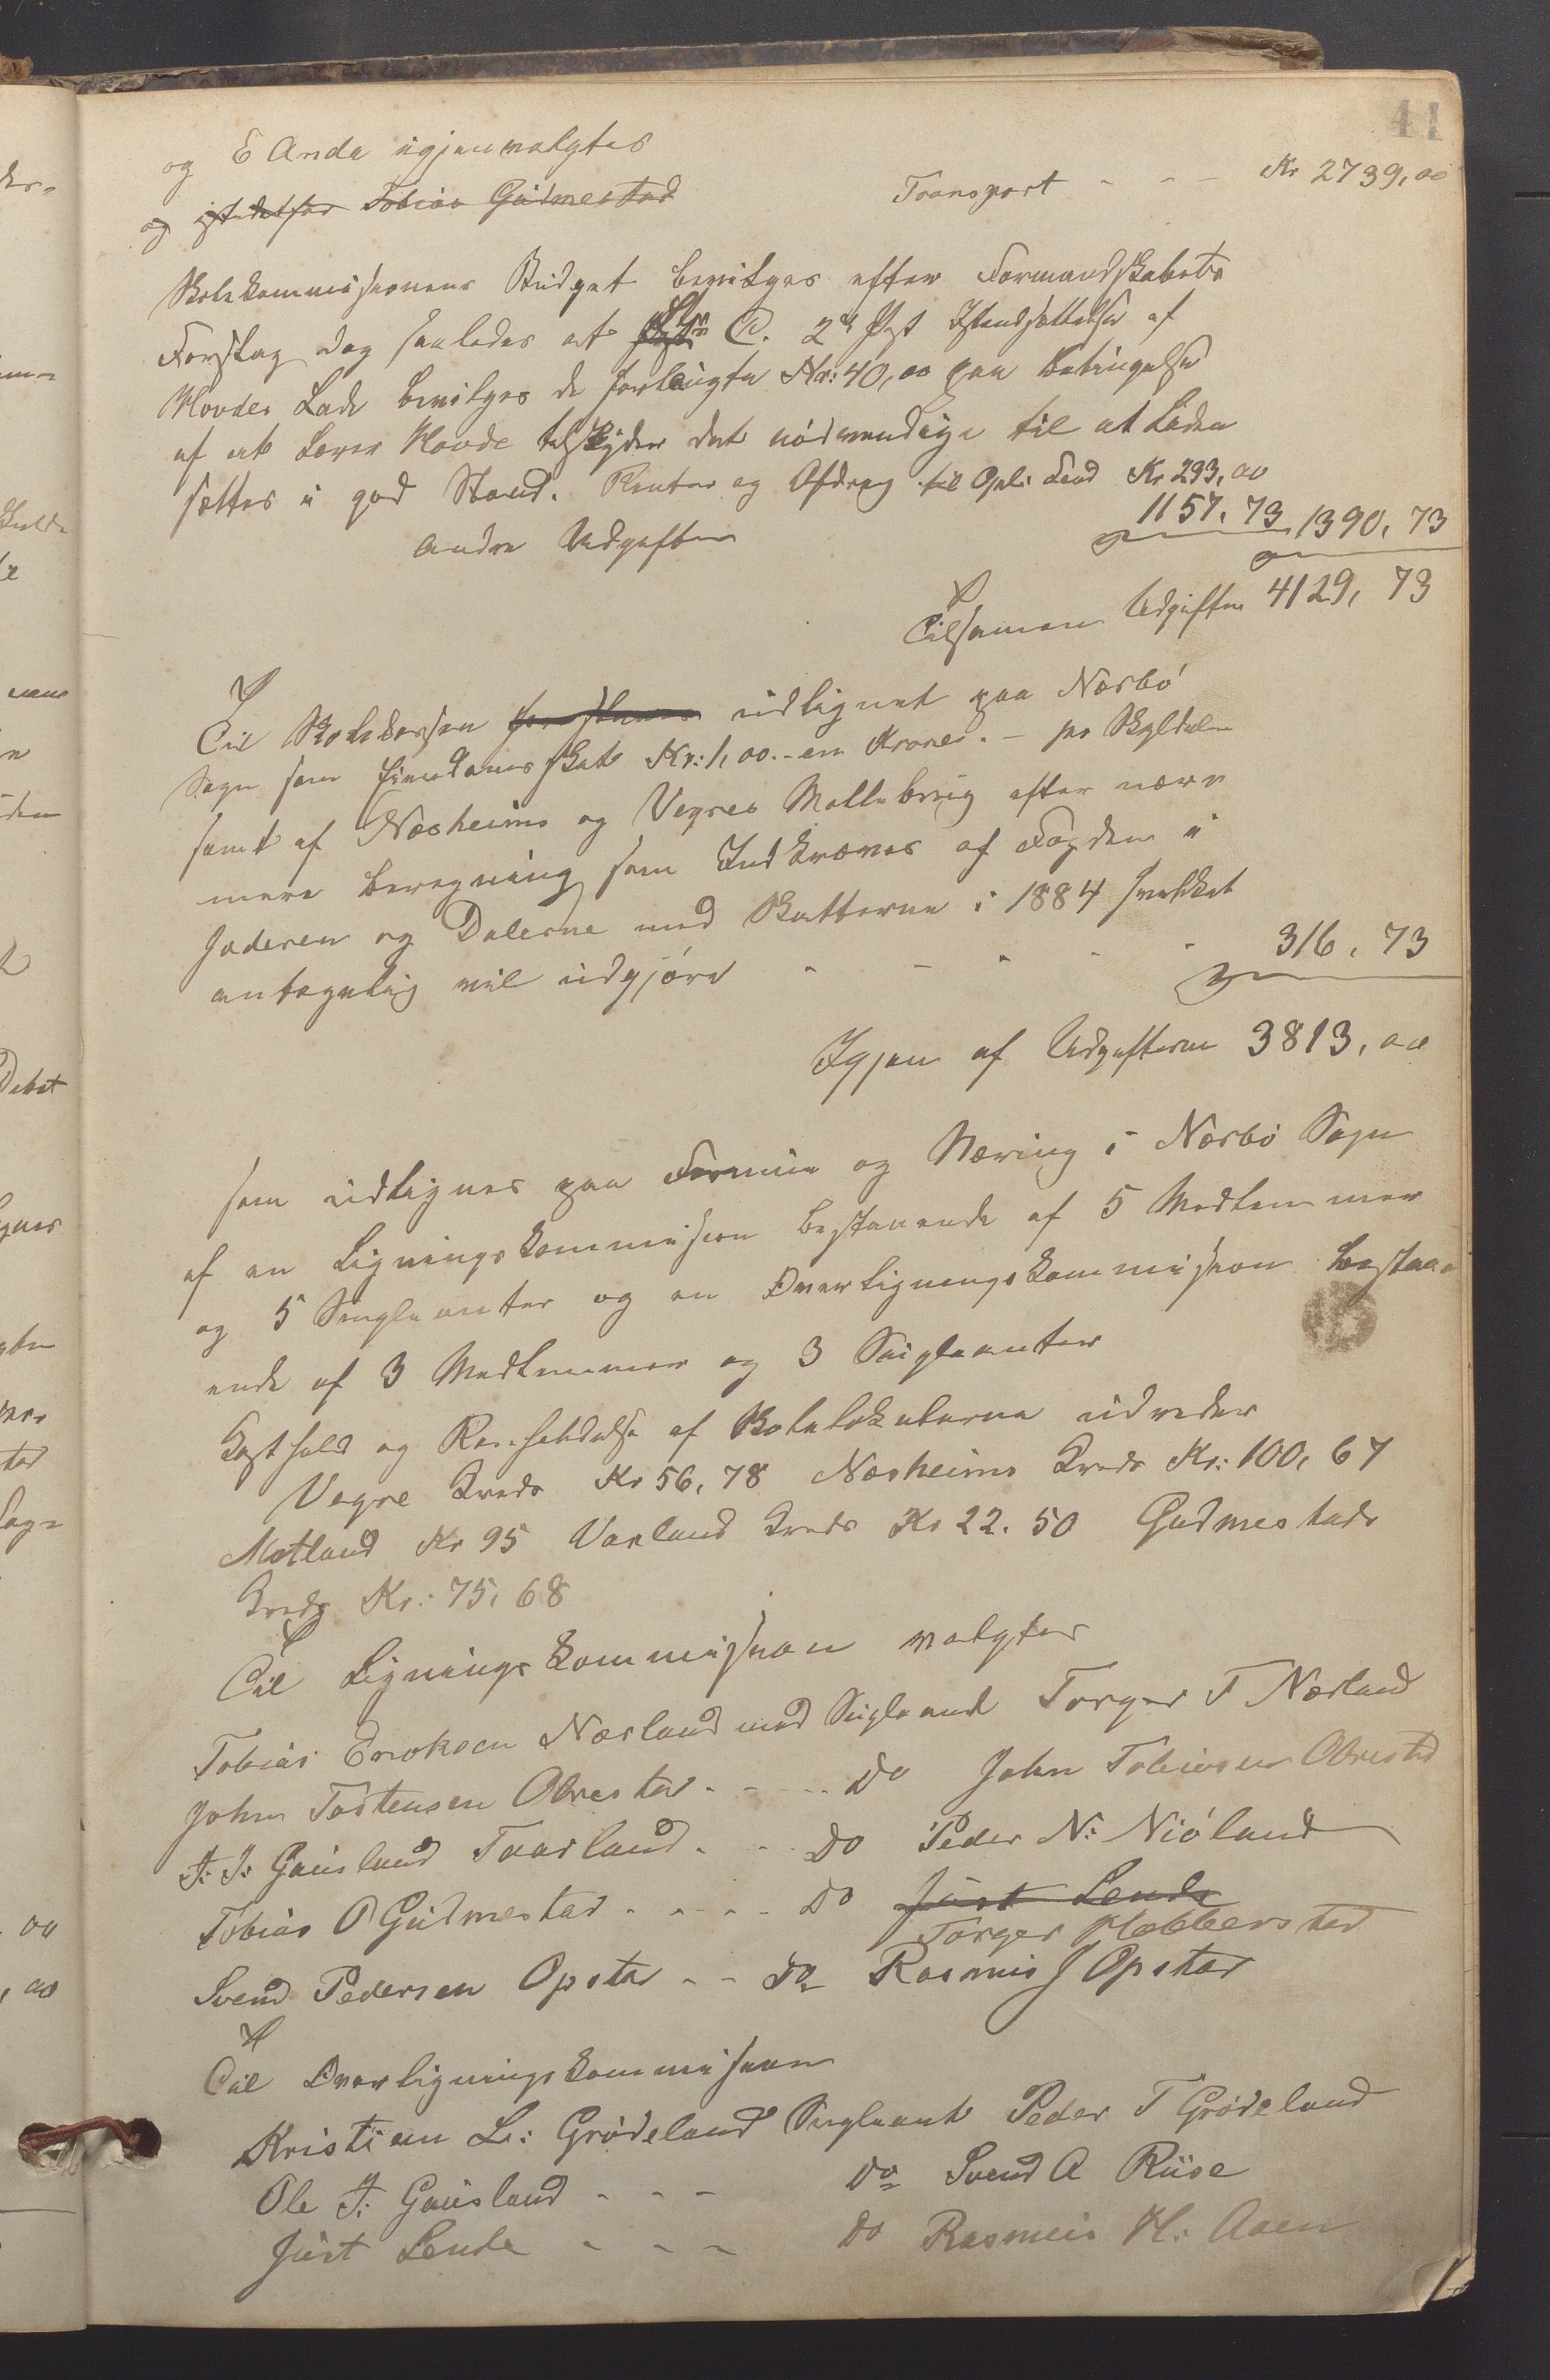 41
og E Anda igjenvalgtes
og istedetfor Tobias Gudmestad
Transport - - - Kr 2739,00
Skolekommisionens Budget bevilges efter Formandskabets
Forslag dog saaledes at C. 2d Post Istandsættelse af
Hovdes Lade bevilges de forlangte Kr: 40,00 paa Betingelse
af at Lærer Hovde tilskyder det nödvendige til at Laden
sættes i god Stand. Renter og Afdrag til Opl: Fond Kr 233,00
andre Udgifter 1157,73 1390,73
Tilsamen Udgifter 4129,73
Til Skolekassen udlignet paa Nærbö
Sogn som Kr: 1,00 - en Krone - pr Skyldaler
samt af Næsheims og Vegres Möllebrug efter nær
mere beregning som Indkræves af Fogden i
Jæderen og Dalerne med Skatterne i 1884 hvilket
antagelig vil udgjöre - - - - - 316,73
Igjen af Udgifterne 3813,00
som udlignes paa Formue og Næring i Nærbö Sogn
af en Ligningskommision bestaaende af 5 Medlemmer
og 5 Supleanter og en Overligningskommision bestaa
ende af 3 Medlemmer og 3 Supleanter
Kosthold og Renholdelse af Skolelokalerne udreder
Vegre Kreds Kr 56,78 Næsheims Kreds Kr: 100,67
Motland Kr 95 Varland Kreds Kr 22.50 Gudmestads
Kreds Kr: 75,68
Til Ligningskommision valgtes
Tobias Eriksen Nærland med Supleant Torger T Nærland
John Tostensen Obrestad - - - - Do John Tobiasen Obrestad
T: J: Gausland Taarland - - Do Peder N: Niöland
Tobias O Gudmestad - - - - Do Just Lende
Torger Hobberstad
Svend Pedersen Opstad - - Do Rasmus J Opstad
Til Overligningskommision
Kristian L: Grödeland Supleant Peder T Grödeland
Ole T: Gausland - - - Do Svend A Riise
Just Lende - - - Do Rasmus H: Aaen